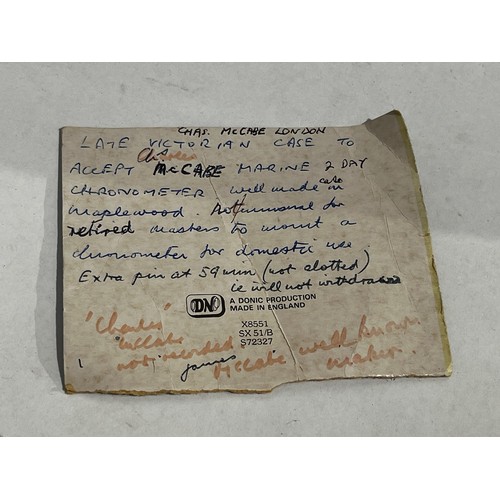 CHAS. McCABE LONDON
LATE VICTORIAN CASE TO
Chas
ACCEPT McCABE MARINE 2 DAY
CHRONOMETER well made case in
maplewood. Not unusual for
retired masters to mount a
chronometer for domestic use.
Extra pin at 59 min (not slotted)
ie will not withdraw
DN A DONIC PRODUCTION
MADE IN ENGLAND
X8551
SX 51/B
S72327
'Charles'
McCabe
not recorded
James
McCabe well known
maker.
1